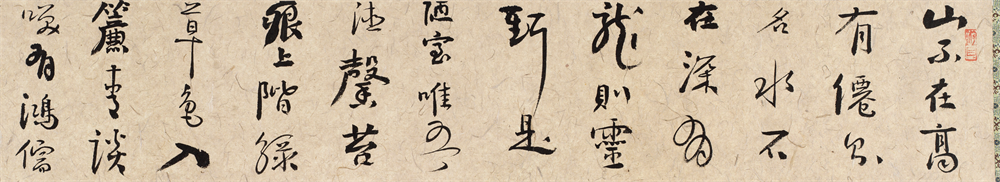 山不在高
有僊則
名水不
在深有
龍則靈
斯是
陋室唯吾
德馨苔
痕上階綠
草色入
簾青談
笑有鴻儒